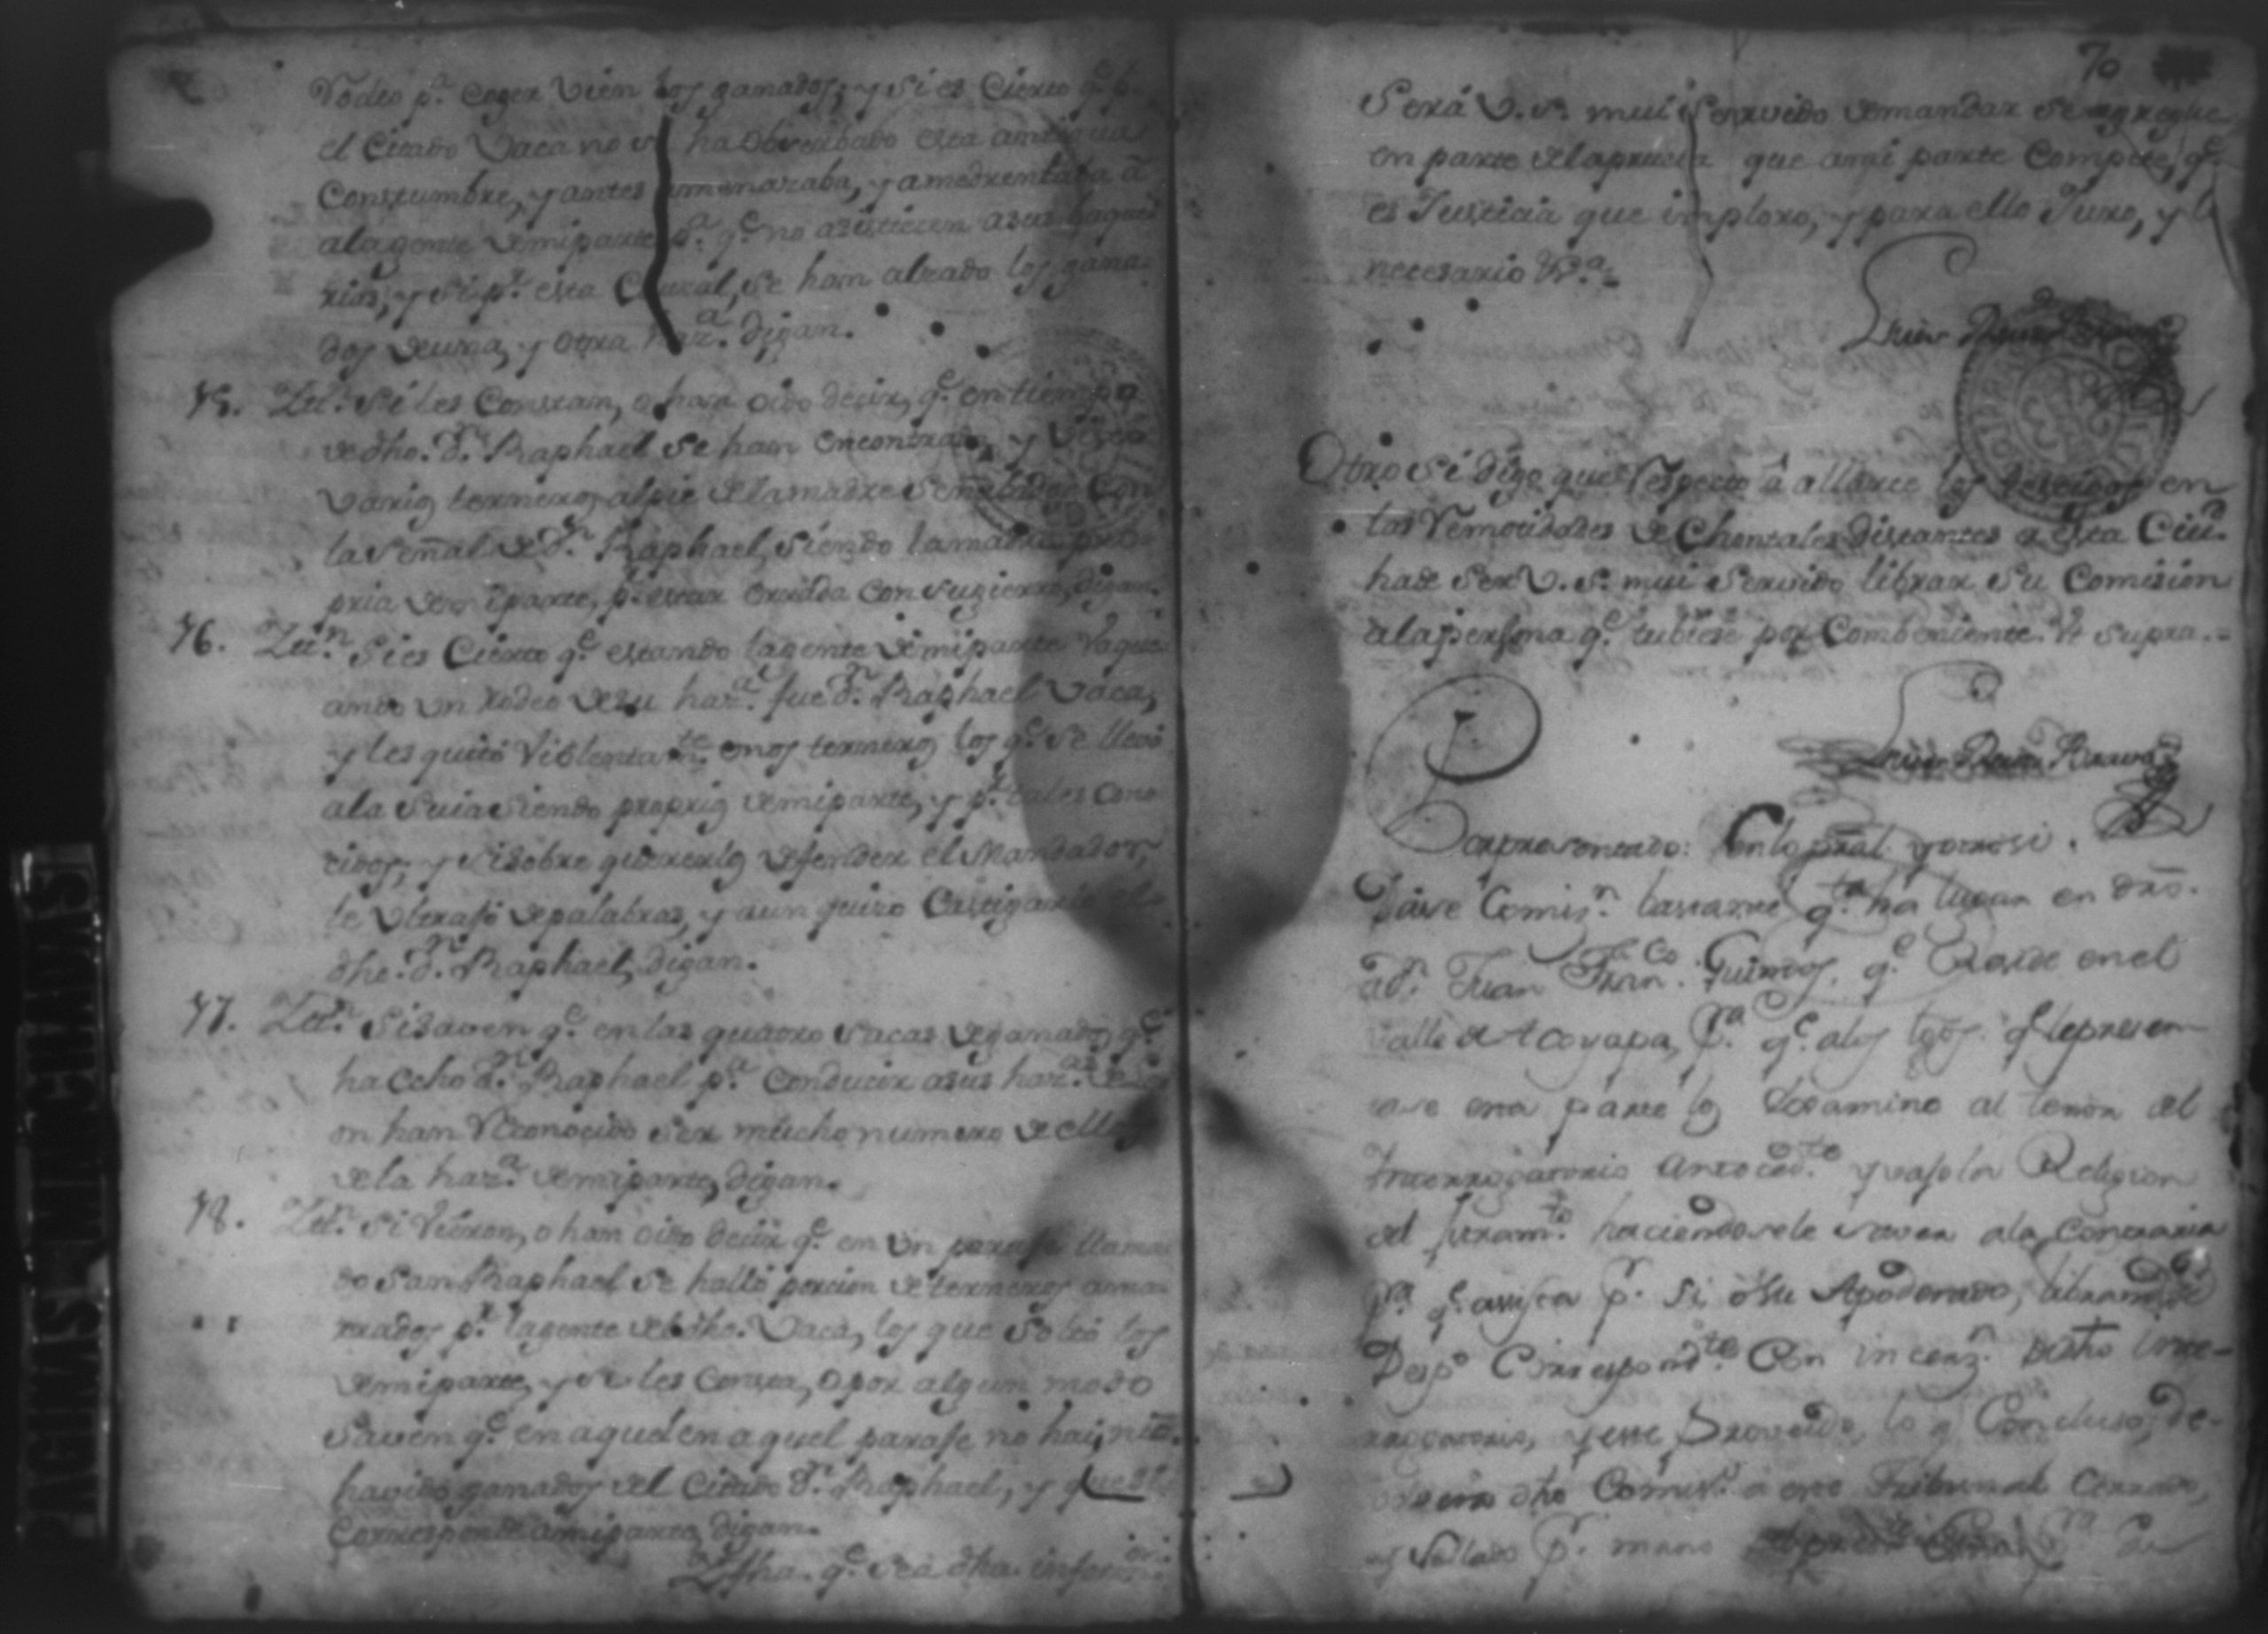 Rodeo pª coger vien los ganados, y si es Cierto q.e
el Citado Vaca no ha obserbado esta antigua
Constumbre, y antes amenazaba, y amedrentaba â
ala gente de mi parte pª q.e no asistiesen asus
rias, y si p.r esta Causal, se han alzado los gana-
dos de una, y otra haz.ª digan.
15. Ittn. Si les Constan, o han oido decir, q.e en tiempo
de dho. Dn. Raphael se han encontrado, y
varios terneros al pie de la madre Señalados Con
la Señal de Dn. Raphael, siendo la madre pro-
pria de mi parte, p.r estar errada con su gierro, digan.
16. Ittn. Si es Cierto q.e estando la gente de mi parte vaque-
ando un rodeo de su haz.ª fue Dn. Raphael Vaca,
y les quitó Violentam.te unos terneros los q.e se llevó
ala suia siendo proprios de mi parte, y p.r tales cono-
cidos, y si sobre quererlos defender el Mandador,
le Ultrajó de palabras, y aun quizo Castigarlo el
dho. Dn. Raphael, digan.
17. Ittn. Si saven q.e en las quatro sacas de ganados, q.e
ha echo Dn. Raphael pª conducir asus haz.as de
on han reconocido ser mucho numero de ellos
de la haz.ª de mi parte, digan.
18. Ittn. Si Vieron, o han oido decir q.e en un paraje llama-
do San Raphael se halló porcion de terneros ama-
rrados p.r la gente de dho. Vaca, los que soltó los
de mi parte, y si les Consta, o por algun modo
Saven q.e en aquel en aquel paraje no hai, ni
havido ganados del Citado Dn. Raphael, y
Corresponde a mi parte, digan.
Ffha. q.e sea dha. inform.on
70
Será V. S.ª mui Servido de mandar se agregue
en parte de la prueva que ami parte Compete, q.e
es Justicia que imploro, y para ello Juro, y lo
necesario &.ª
Otro si digo que respecto â allarce los testigos en
las remotidades de Chontales distantes a esta Ciu.d
ha de ser V. S.ª mui servido librar su Comision
ala persona q.e tubiese por Combeniente. Vt supra.=
Por presentado: En lo pral. y otro si.
Dáse Comis.n bastante q.ta ha lugar en dro.
a Dn. Juan Fran.co q.e Reside en el
Valle de Acoyapa, P.ª q.e alos tgos. q.e le presen-
tare una parte los Examine al tenor del
Interrogatorio anteced.te y vajo la Religion
del juram.to haciendosele saver ala Contraria
P.ª q.e asista p.r si, o su Apoderado, librandose
Desp.o Correspond.te Con incerz.n dicho Inte-
rrogatorio, y este Proveido, lo q.e Concluso, de-
dho Comis.do a este Tribunal Cerrado,
y Sellado P.r mano